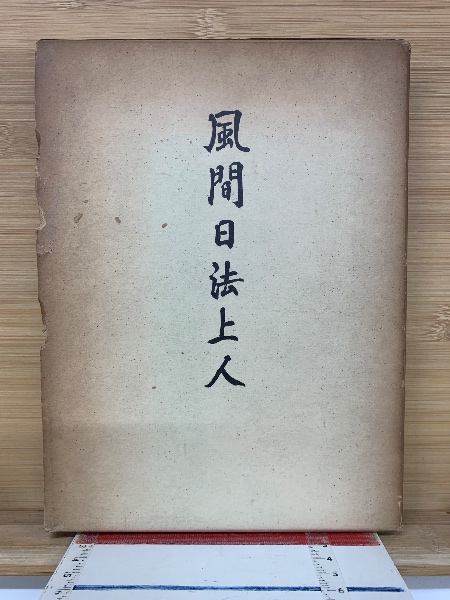 風間日法上人